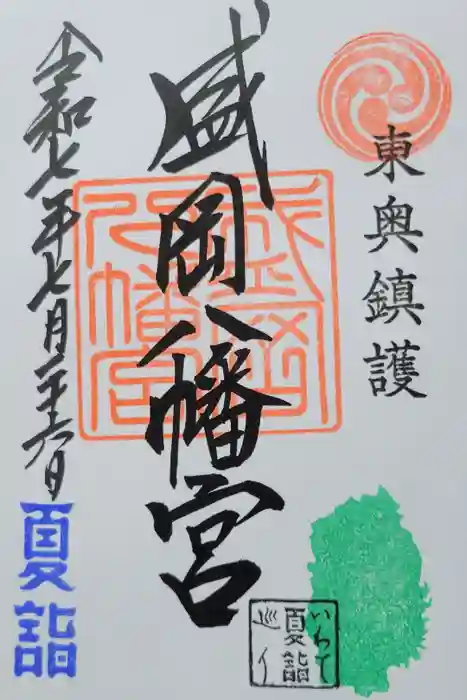 東奥鎮護
盛岡八幡宮
盛岡八幡宮
令和七年七月二十六日
夏詣
いわて
夏詣
巡り